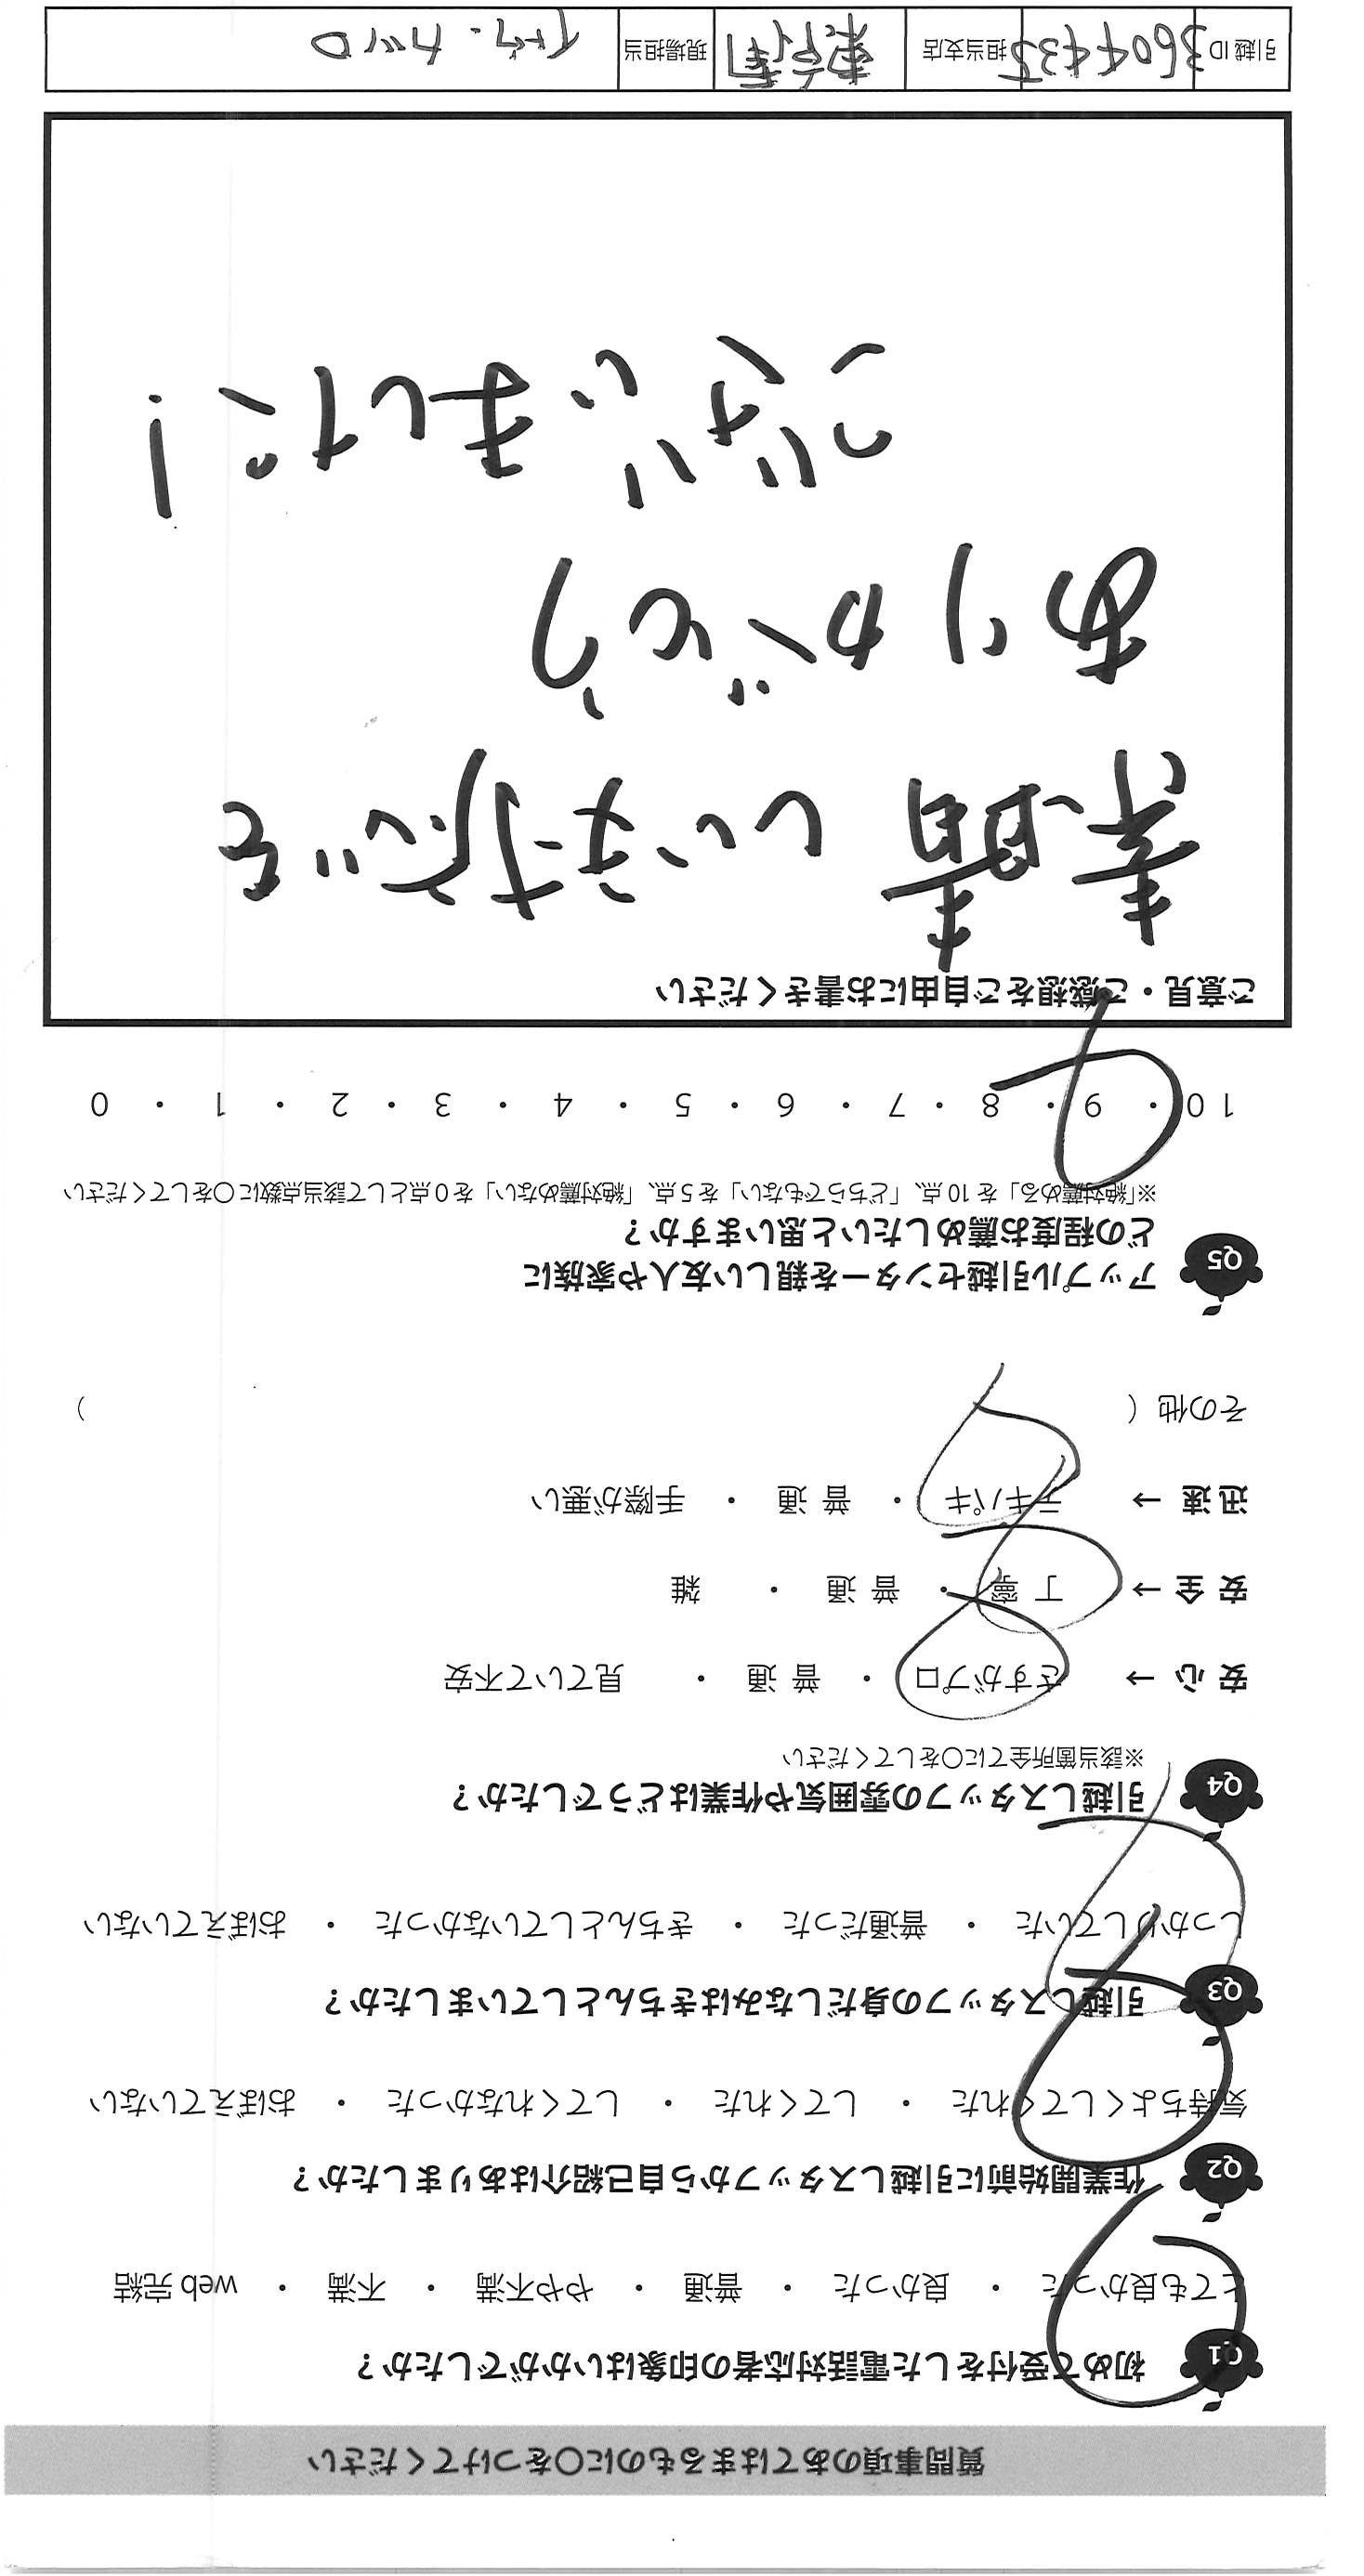 質問事項のあてはまるものに○をつけてください
Q1 初めて受付をした電話対応者の印象はいかがでしたか？
とても良かった ・ 良かった ・ 普通 ・ やや不満 ・ 不満 ・ web 完結
Q2 作業開始前に引越しスタッフから自己紹介はありましたか？
気持ちよくしてくれた ・ してくれた ・ してくれなかった ・ おぼえていない
Q3 引越しスタッフの身だしなみはきちんとしていましたか？
しっかりしていた ・ 普通だった ・ きちんとしていなかった ・ おぼえていない
Q4 引越しスタッフの雰囲気や作業はどうでしたか？
※該当箇所全てに○をしてください
安 心 → さすがプロ ・ 普 通 ・ 見ていて不安
安 全 → 丁 寧 ・ 普 通 ・ 雑
迅 速 → テキパキ ・ 普 通 ・ 手際が悪い
その他（ ）
Q5 アップル引越センターを親しい友人や家族に
どの程度お薦めしたいと思いますか？
※「絶対薦める」を 10 点、「どちらでもない」を 5 点、「絶対薦めない」を 0 点として該当点数に○をしてください
10 ・ 9 ・ 8 ・ 7 ・ 6 ・ 5 ・ 4 ・ 3 ・ 2 ・ 1 ・ 0
ご意見・ご感想をご自由にお書きください
素晴しい引越を
ありがとう
ございました。！
引越 ID 3604435 担当支店 現場担当